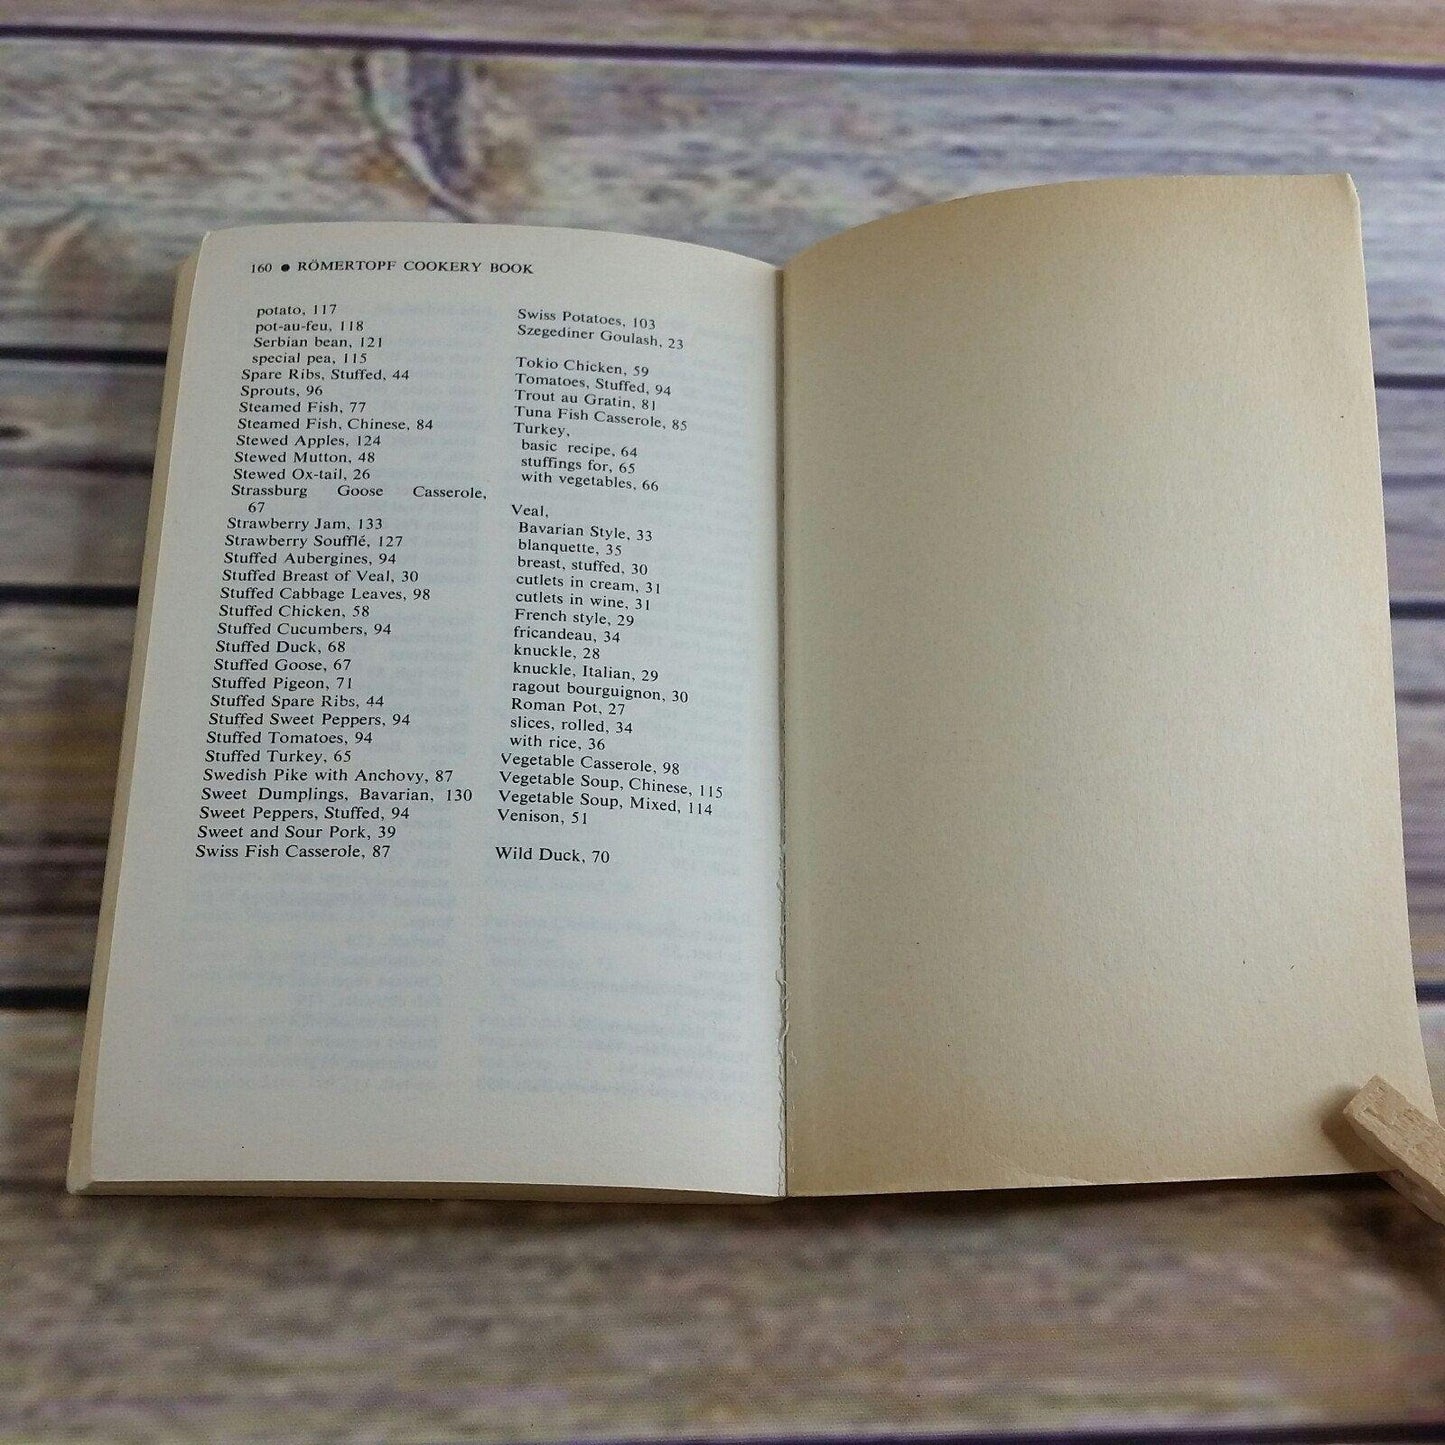 160 ● RÖMERTOPF COOKERY BOOK
potato, 117
pot-au-feu, 118
Serbian bean, 121
special pea, 115
Spare Ribs, Stuffed, 44
Sprouts, 96
Steamed Fish, 77
Steamed Fish, Chinese, 84
Stewed Apples, 124
Stewed Mutton, 48
Stewed Ox-tail, 26
Strassburg Goose Casserole,
67
Strawberry Jam, 133
Strawberry Soufflé, 127
Stuffed Aubergines, 94
Stuffed Breast of Veal, 30
Stuffed Cabbage Leaves, 98
Stuffed Chicken, 58
Stuffed Cucumbers, 94
Stuffed Duck, 68
Stuffed Goose, 67
Stuffed Pigeon, 71
Stuffed Spare Ribs, 44
Stuffed Sweet Peppers, 94
Stuffed Tomatoes, 94
Stuffed Turkey, 65
Swedish Pike with Anchovy, 87
Sweet Dumplings, Bavarian, 130
Sweet Peppers, Stuffed, 94
Sweet and Sour Pork, 39
Swiss Fish Casserole, 87
Swiss Potatoes, 103
Szegediner Goulash, 23
Tokio Chicken, 59
Tomatoes, Stuffed, 94
Trout au Gratin, 81
Tuna Fish Casserole, 85
Turkey,
basic recipe, 64
stuffings for, 65
with vegetables, 66
Veal,
Bavarian Style, 33
blanquette, 35
breast, stuffed, 30
cutlets in cream, 31
cutlets in wine, 31
French style, 29
fricandeau, 34
knuckle, 28
knuckle, Italian, 29
ragout bourguignon, 30
Roman Pot, 27
slices, rolled, 34
with rice, 36
Vegetable Casserole, 98
Vegetable Soup, Chinese, 115
Vegetable Soup, Mixed, 114
Venison, 51
Wild Duck, 70